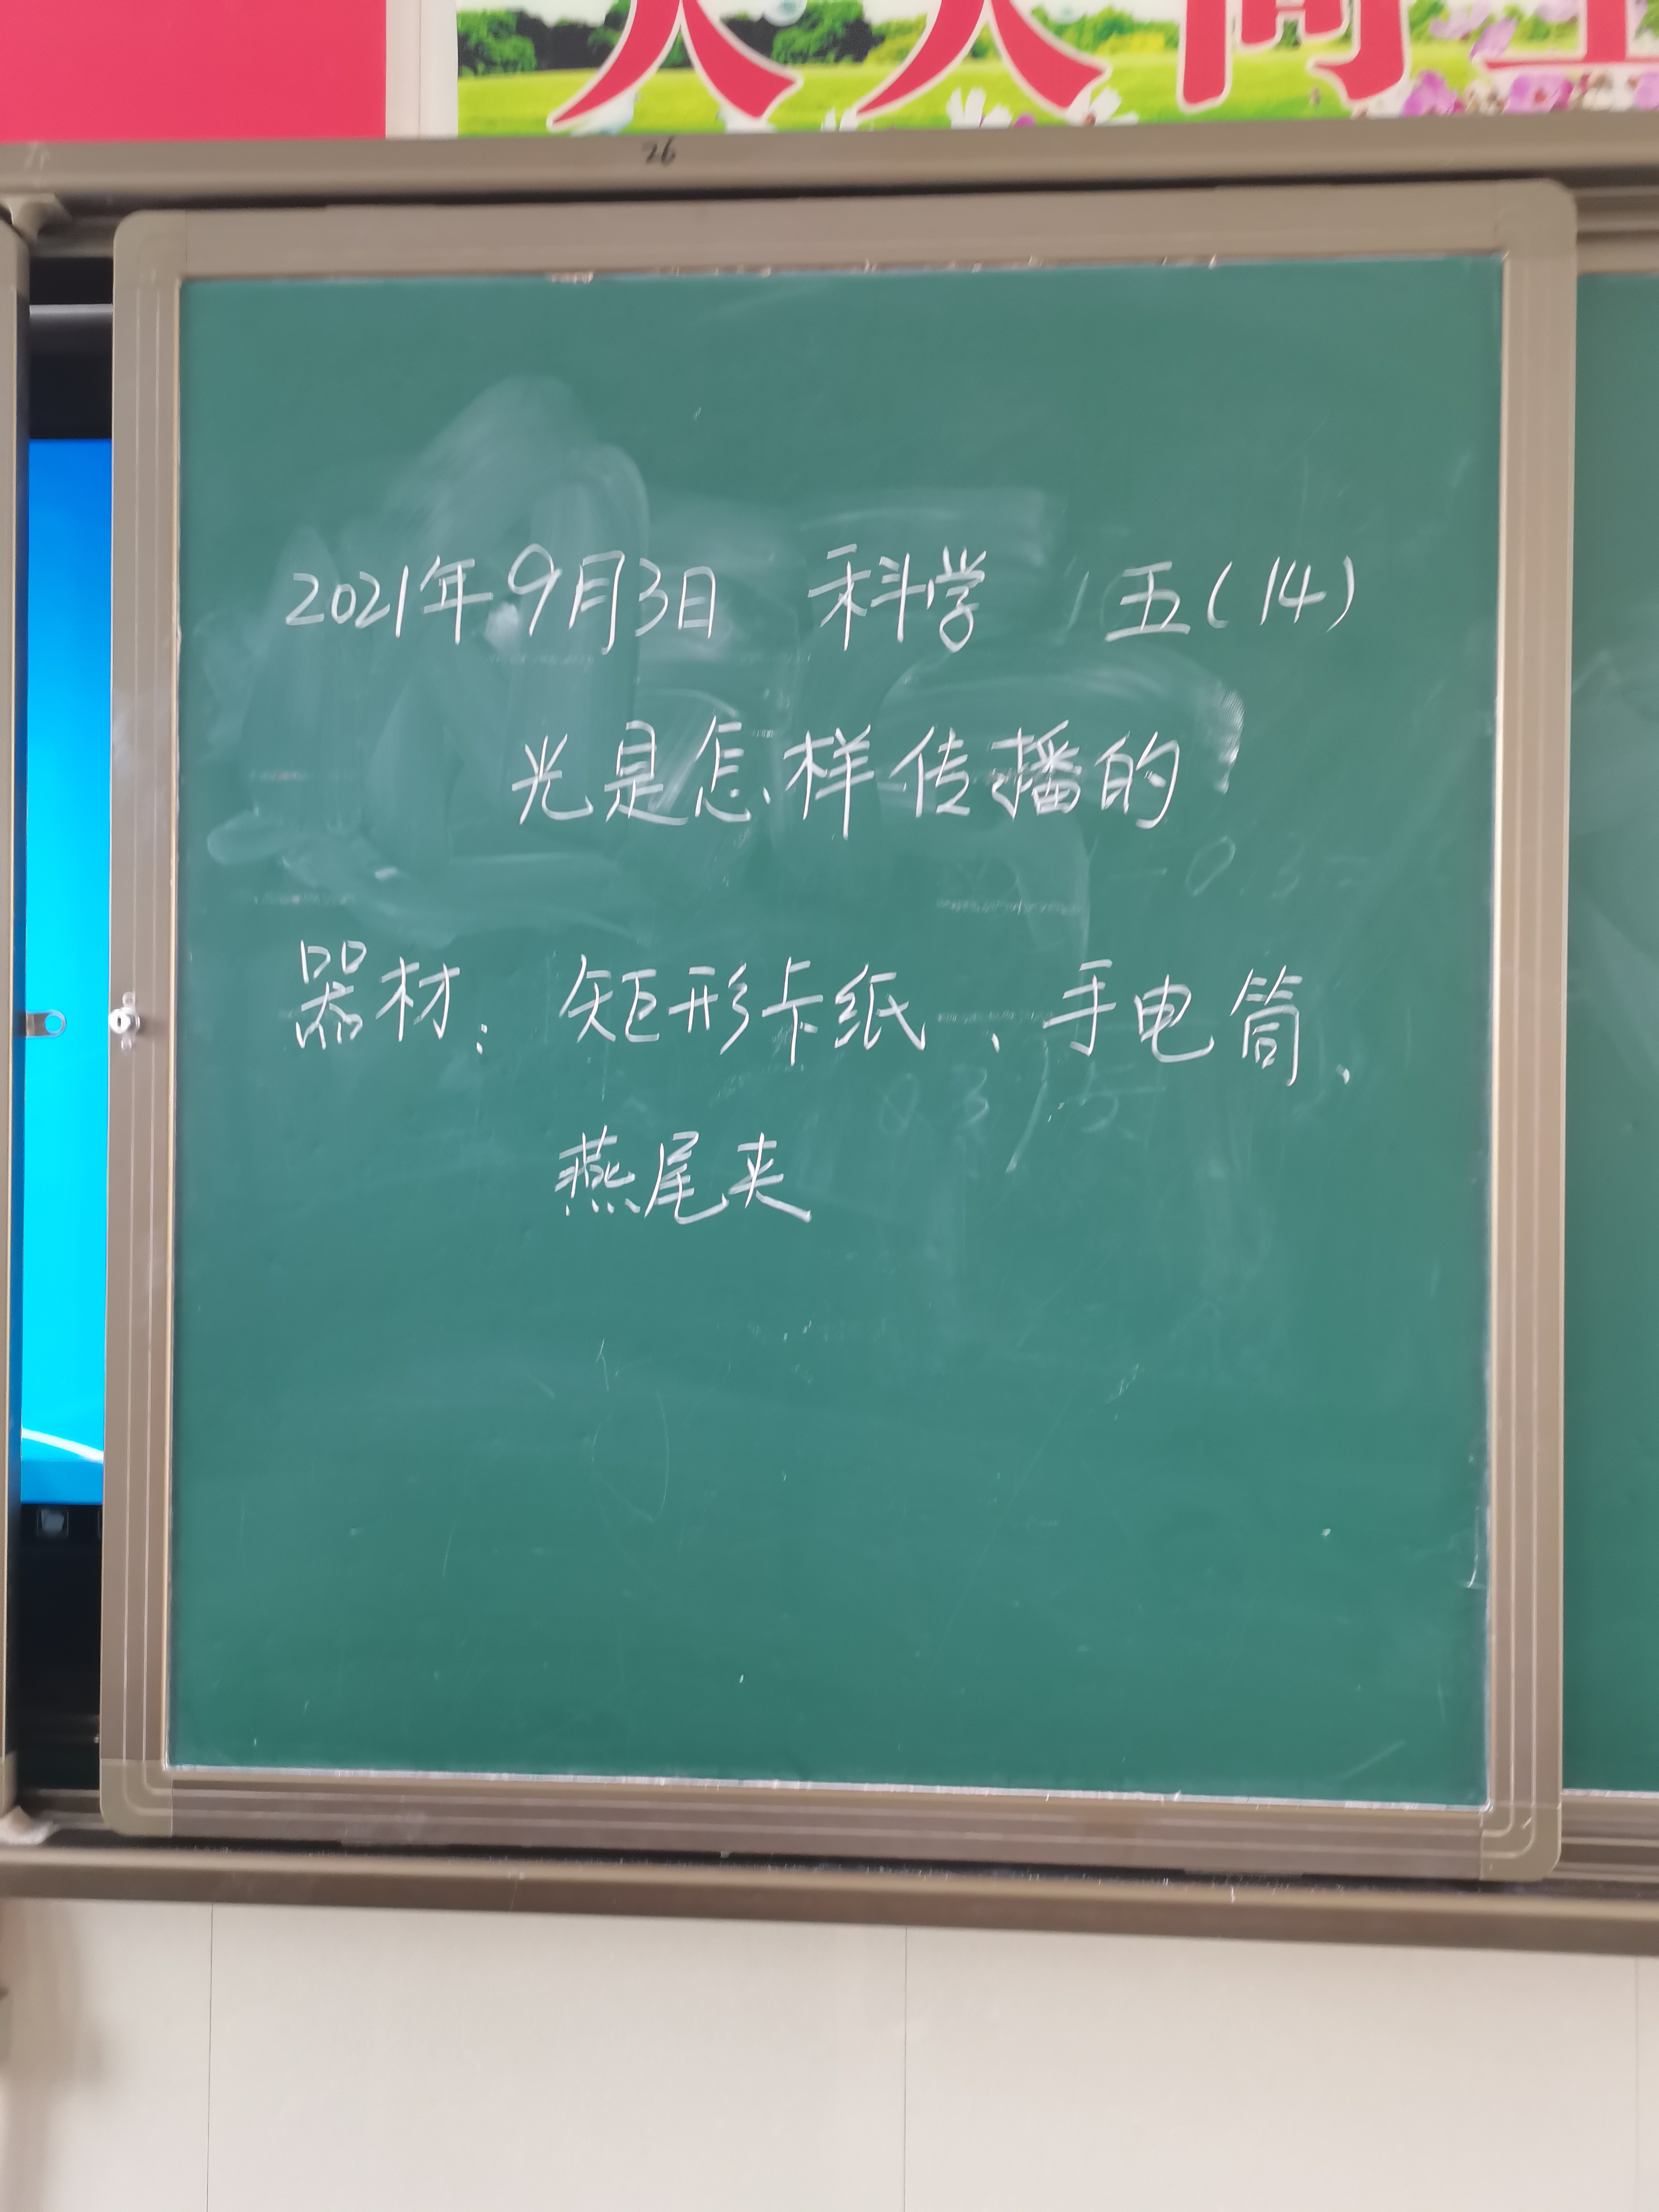 26
2021年9月3日 科学 五(14)
光是怎样传播的
器材: 矩形卡纸、手电筒、
燕尾夹